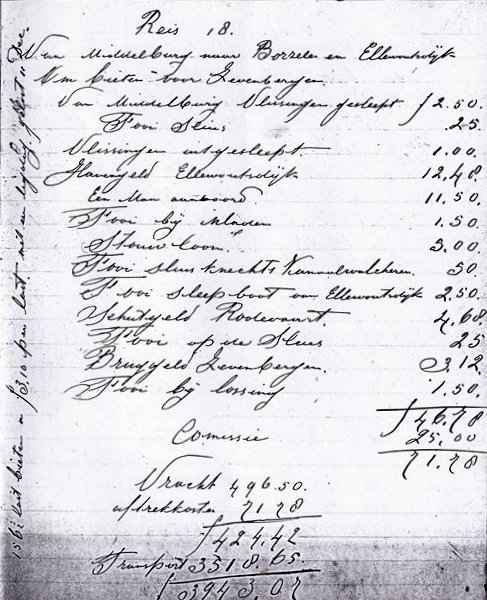 Reis 18.
Van Middelburg naar Borzele en Ellewoutsdijk
Om bieten voor Zevenbergen.
Van Middelburg Vlissingen gesleept f 2.50.
Fooi Sluis .25
Vlissingen uitgesleept. 1.00.
Havengeld Ellewoutsdijk 12.48
Een Man aanboord. 11.50
Fooi bij Mladen 1.50
Stouwloon. 5.00
Fooi sluisknechts Kanaalwalcheren. 50.
Fooi sleepboot van Ellewoutsdijk 2.50.
Schutgeld Roodevaart. 4.68.
Fooi op de Sluis 25
Bruggeld Zevenbergen. 3.12
Fooi bij lossing 1.50.
f 46.78
Comissie 25.00
71.78
Vracht 496.50.
aftrekkosten 71.78
f 424.42
Transport 3518.65.
f 3943.07
156½ last bieten a f 3,10 per last. met een ligdag. gelost 11 Dec.